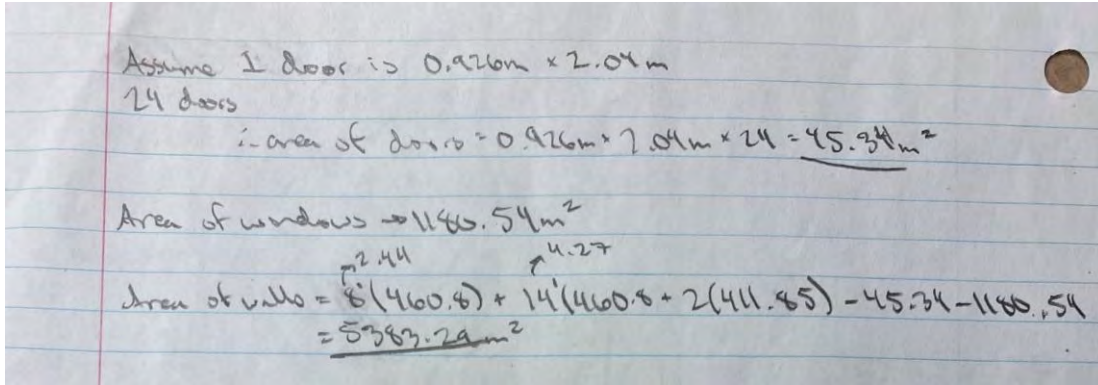 Assume 1 door is 0.926m × 2.04m
24 doors
∴ area of doors = 0.926m × 2.04m × 24 = 45.34m²
Area of windows → 1180.54m²
2.44 4.27
Area of walls = 8'(460.8) + 14'(460.8 + 2(411.85) - 45.34 - 1180.54
= 5383.29m²